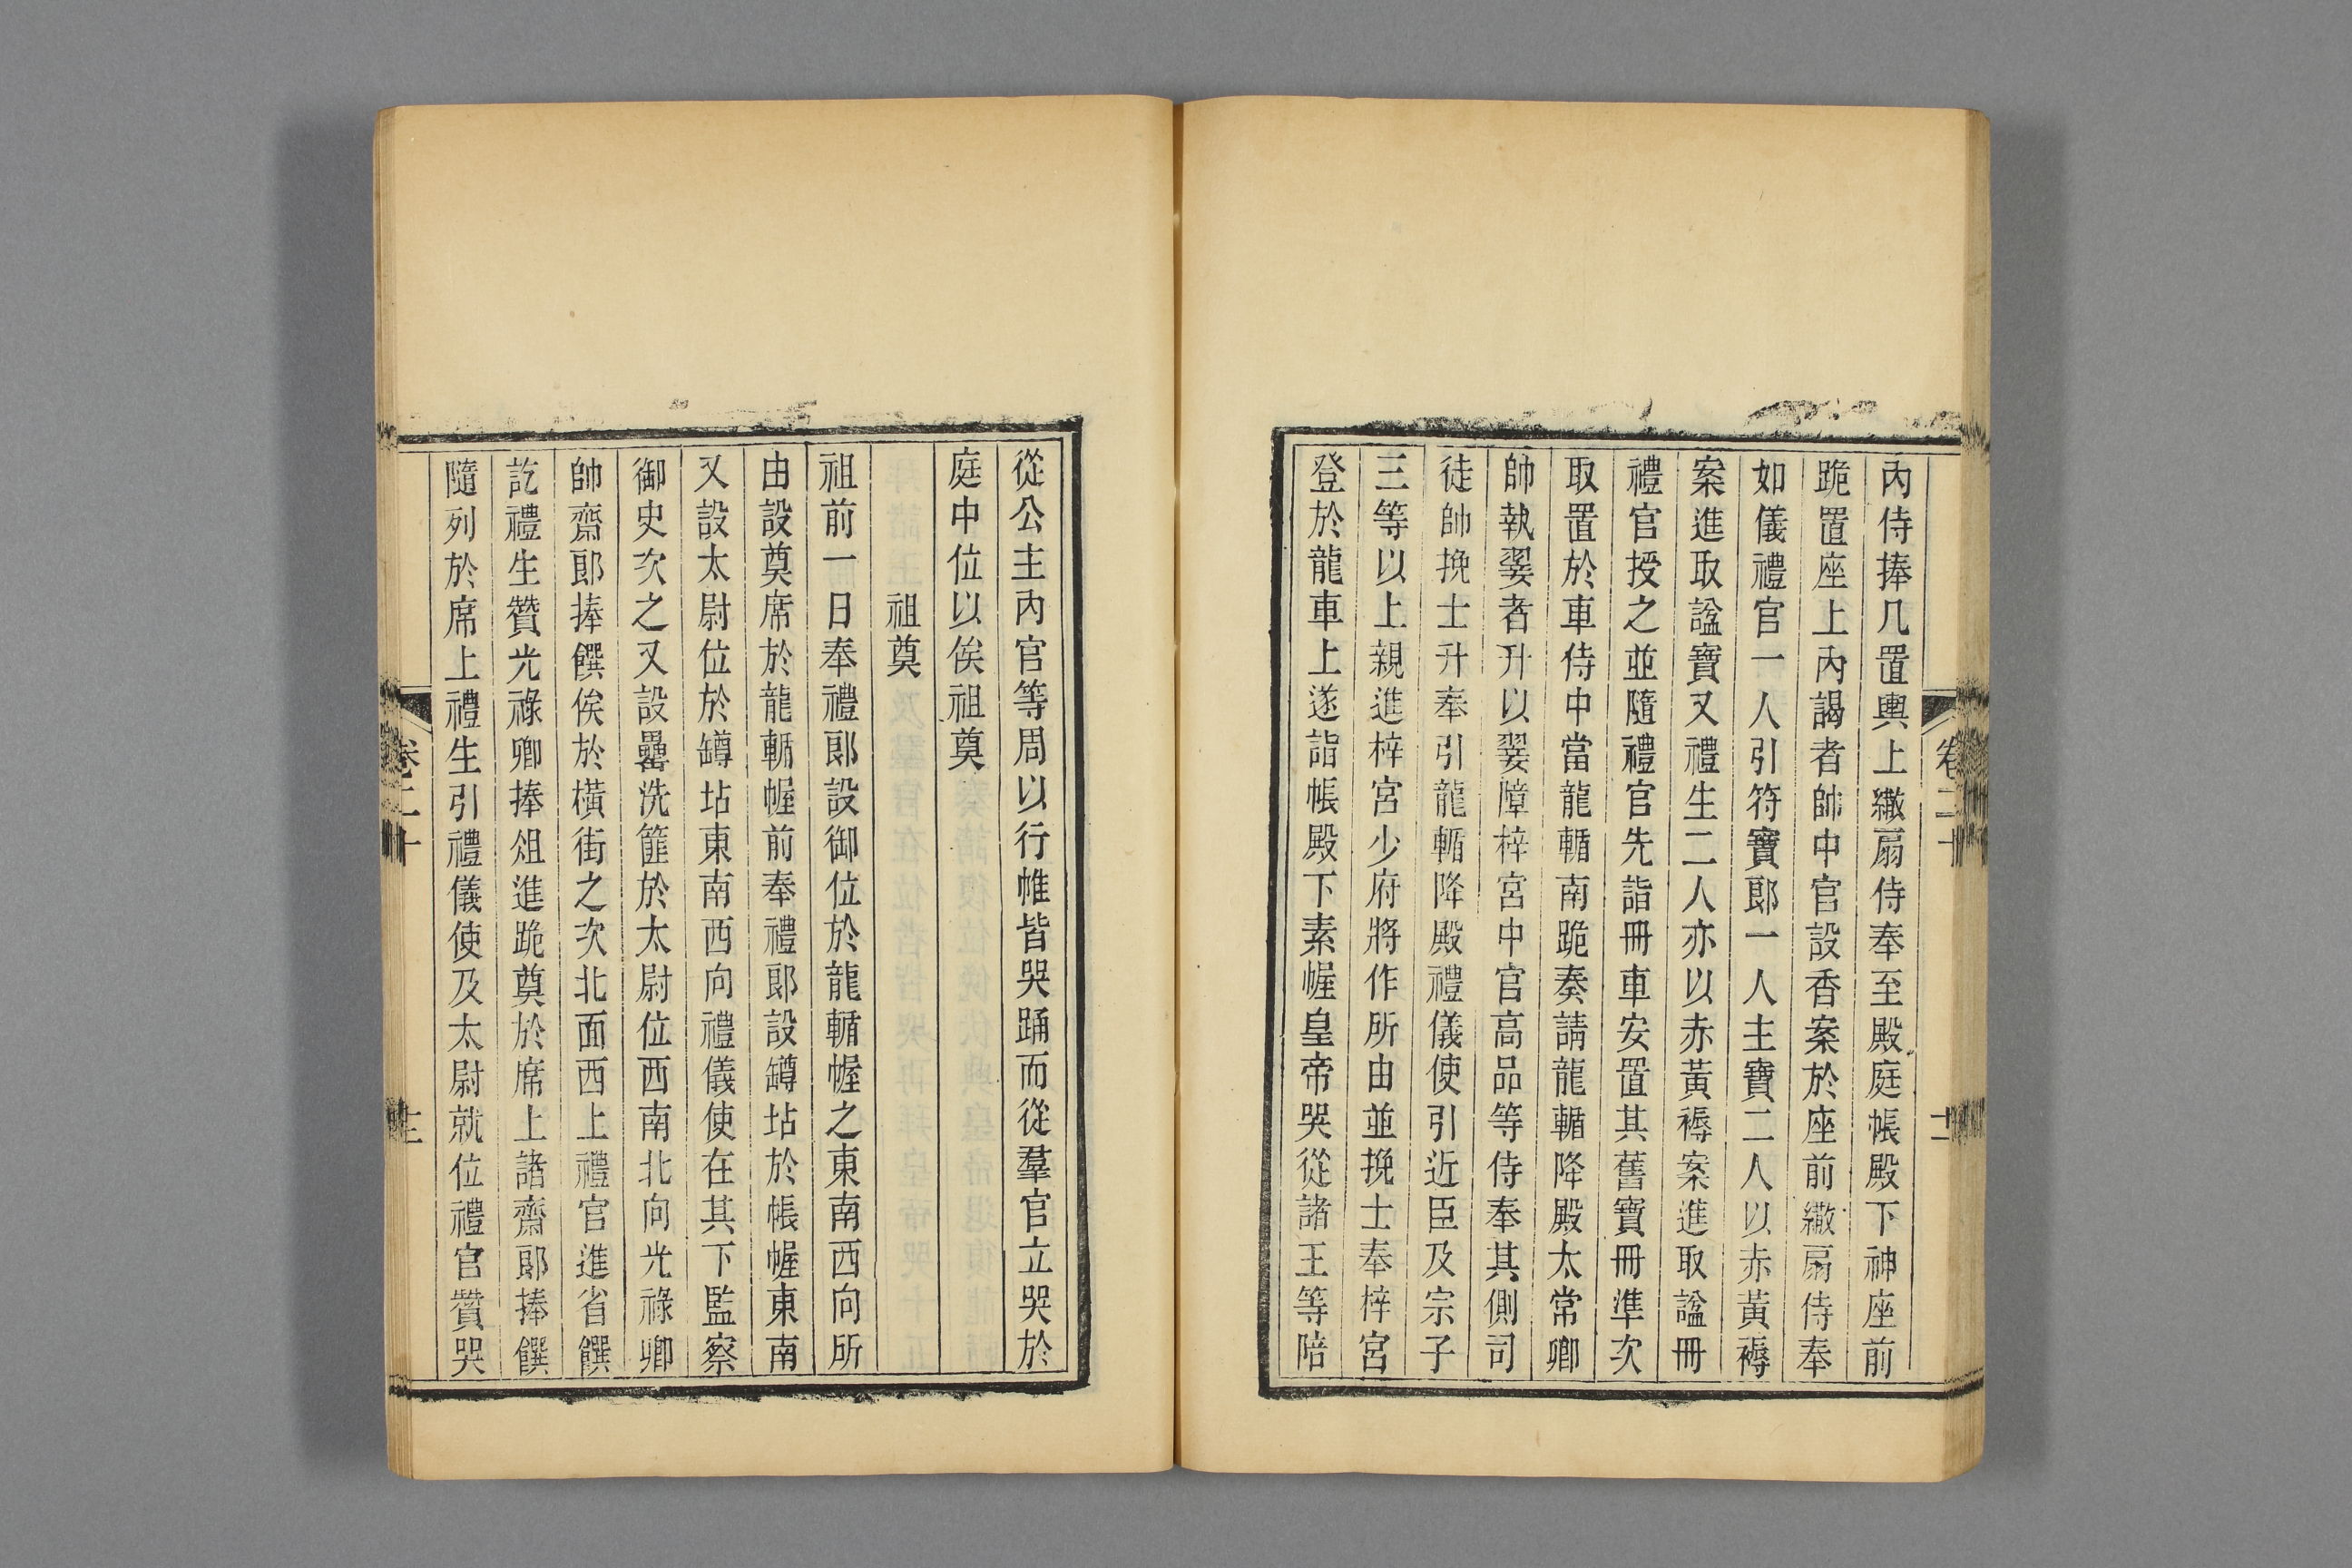 內侍捧几置輿上繖扇侍奉至殿庭帳殿下神座前
跪置座上內謁者帥中官設香案於座前繖扇侍奉
如儀禮官一人引符寶郞一人主寶二人以赤黃褥
案進取謚寶又禮生二人亦以赤黃褥案進取謚冊
禮官授之並隨禮官先詣冊車安置其舊寶冊準次
取置於車侍中當龍輴南跪奏請龍輴降殿太常卿
帥執翣者升以翣障梓宮中官高品等侍奉其側司
徒帥挽士升奉引龍輴降殿禮儀使引近臣及宗子
三等以上親進梓宮少府將作所由並挽士奉梓宮
登於龍車上遂詣帳殿下素幄皇帝哭從諸王等陪
卷二十
十一
從公主內官等周以行帷皆哭踊而從羣官立哭於
庭中位以俟祖奠
祖奠
祖前一日奉禮郞設御位於龍輴幄之東南西向所
由設奠席於龍輴幄前奉禮郞設罇坫於帳幄東南
又設太尉位於罇坫東南西向禮儀使在其下監察
御史次之又設罍洗篚於太尉位西南北向光祿卿
帥齋郞捧饌俟於橫街之次北面西上禮官進省饌
訖禮生贊光祿卿捧俎進跪奠於席上諸齋郞捧饌
隨列於席上禮生引禮儀使及太尉就位禮官贊哭
卷二十